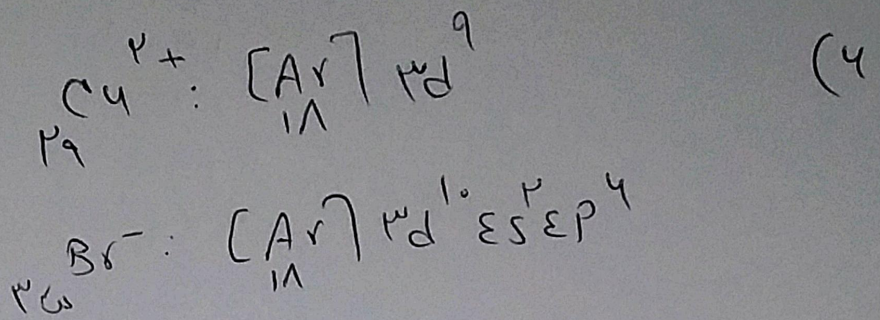 ۶) ۲۹Cu۲+ : [۱۸Ar] ۳d۹
۳۵Br- : [۱۸Ar] ۳d۱۰ ۴s۲ ۴p۶